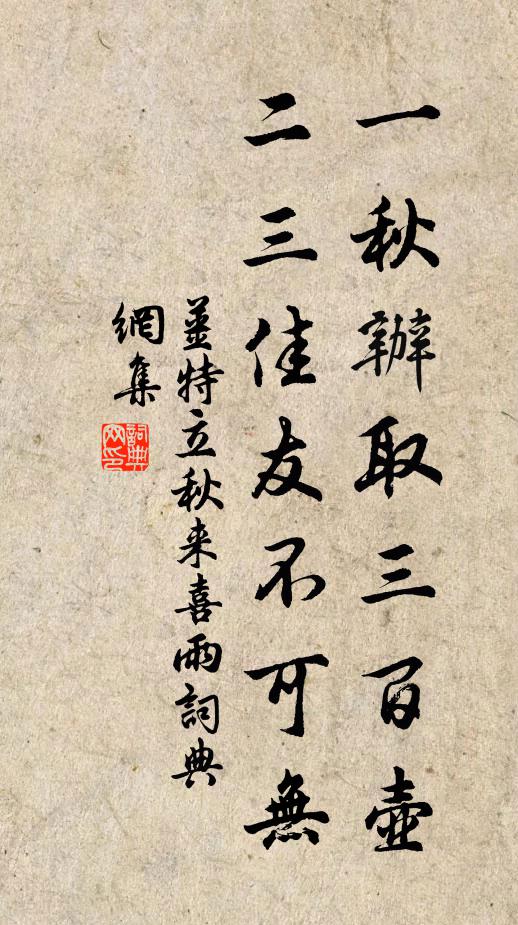 一秋辦取三百壺
二三佳友不可無
薑特立秋来喜雨詞典
網集
詞典网印